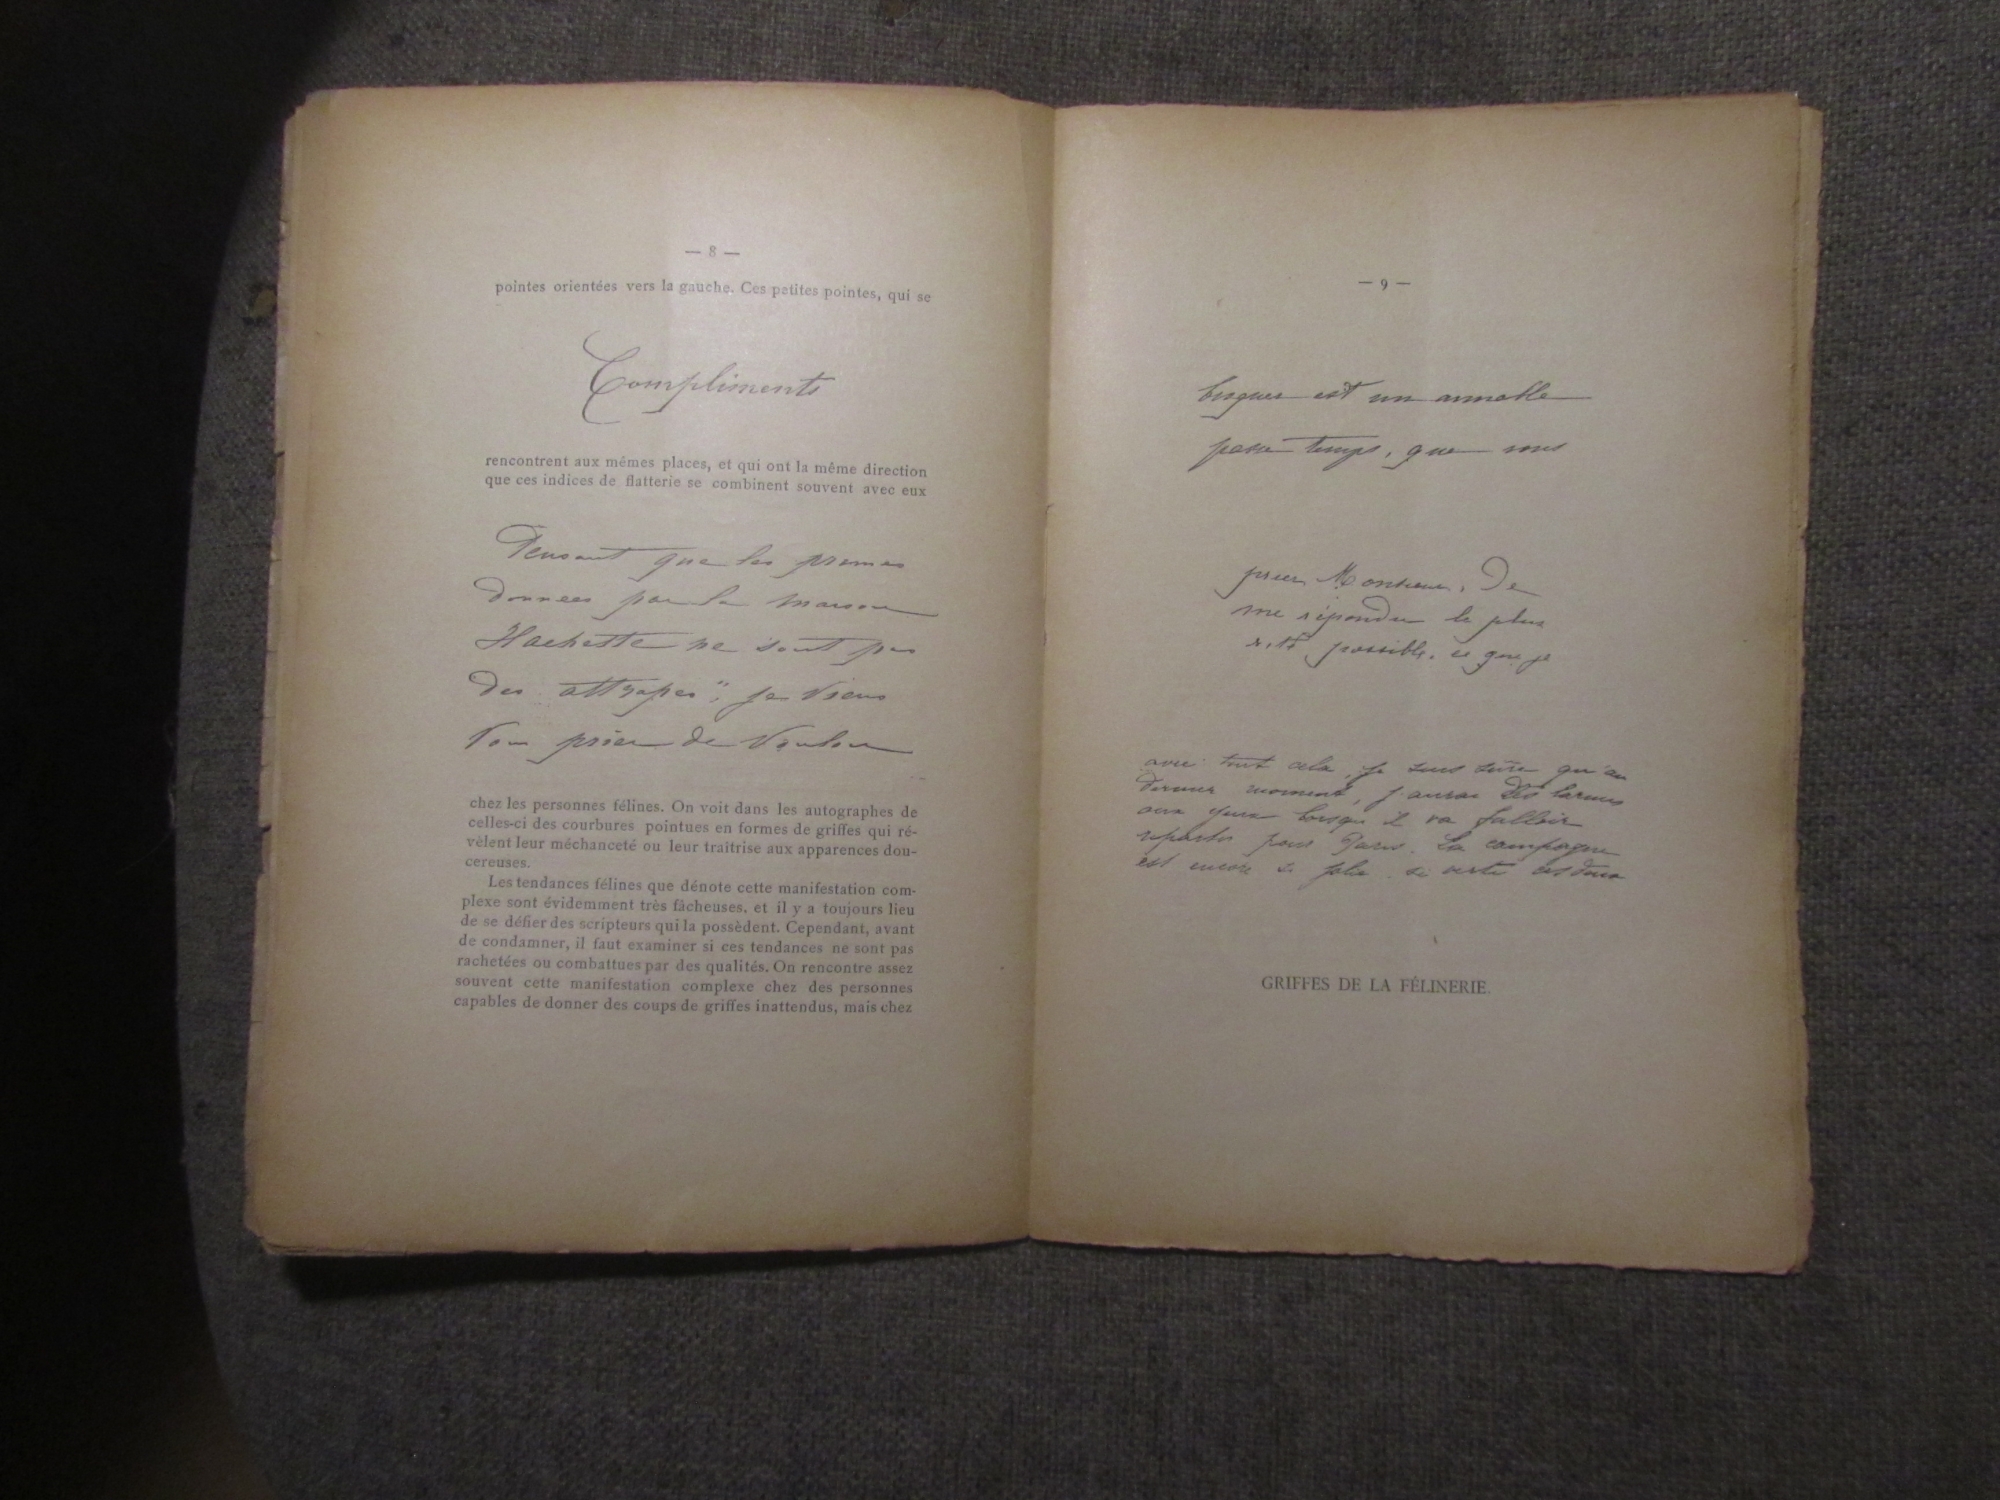 — 8 —
pointes orientées vers la gauche. Ces petites pointes, qui se
Compliments
rencontrent aux mêmes places, et qui ont la même direction
que ces indices de flatterie se combinent souvent avec eux
Pensant que les primes
données par la maison
Hachette ne sont pas
des attrapes", je viens
Vous prier de Vouloir
chez les personnes félines. On voit dans les autographes de
celles-ci des courbures pointues en formes de griffes qui ré-
vèlent leur méchanceté ou leur traîtrise aux apparences dou-
cereuses.
Les tendances félines que dénote cette manifestation com-
plexe sont évidemment très fâcheuses, et il y a toujours lieu
de se défier des scripteurs qui la possèdent. Cependant, avant
de condamner, il faut examiner si ces tendances ne sont pas
rachetées ou combattues par des qualités. On rencontre assez
souvent cette manifestation complexe chez des personnes
capables de donner des coups de griffes inattendus, mais chez
— 9 —
est un aimable
passe temps, que vous
prier Monsieur, De
me répondre le plus
vite possible. ce que je
avec tout cela, je suis sûre qu'au
dernier moment, j'aurai des larmes
aux yeux lorsqu'il va falloir
repartir pour Paris. La campagne
est encore si jolie, si verte
GRIFFES DE LA FÉLINERIE.